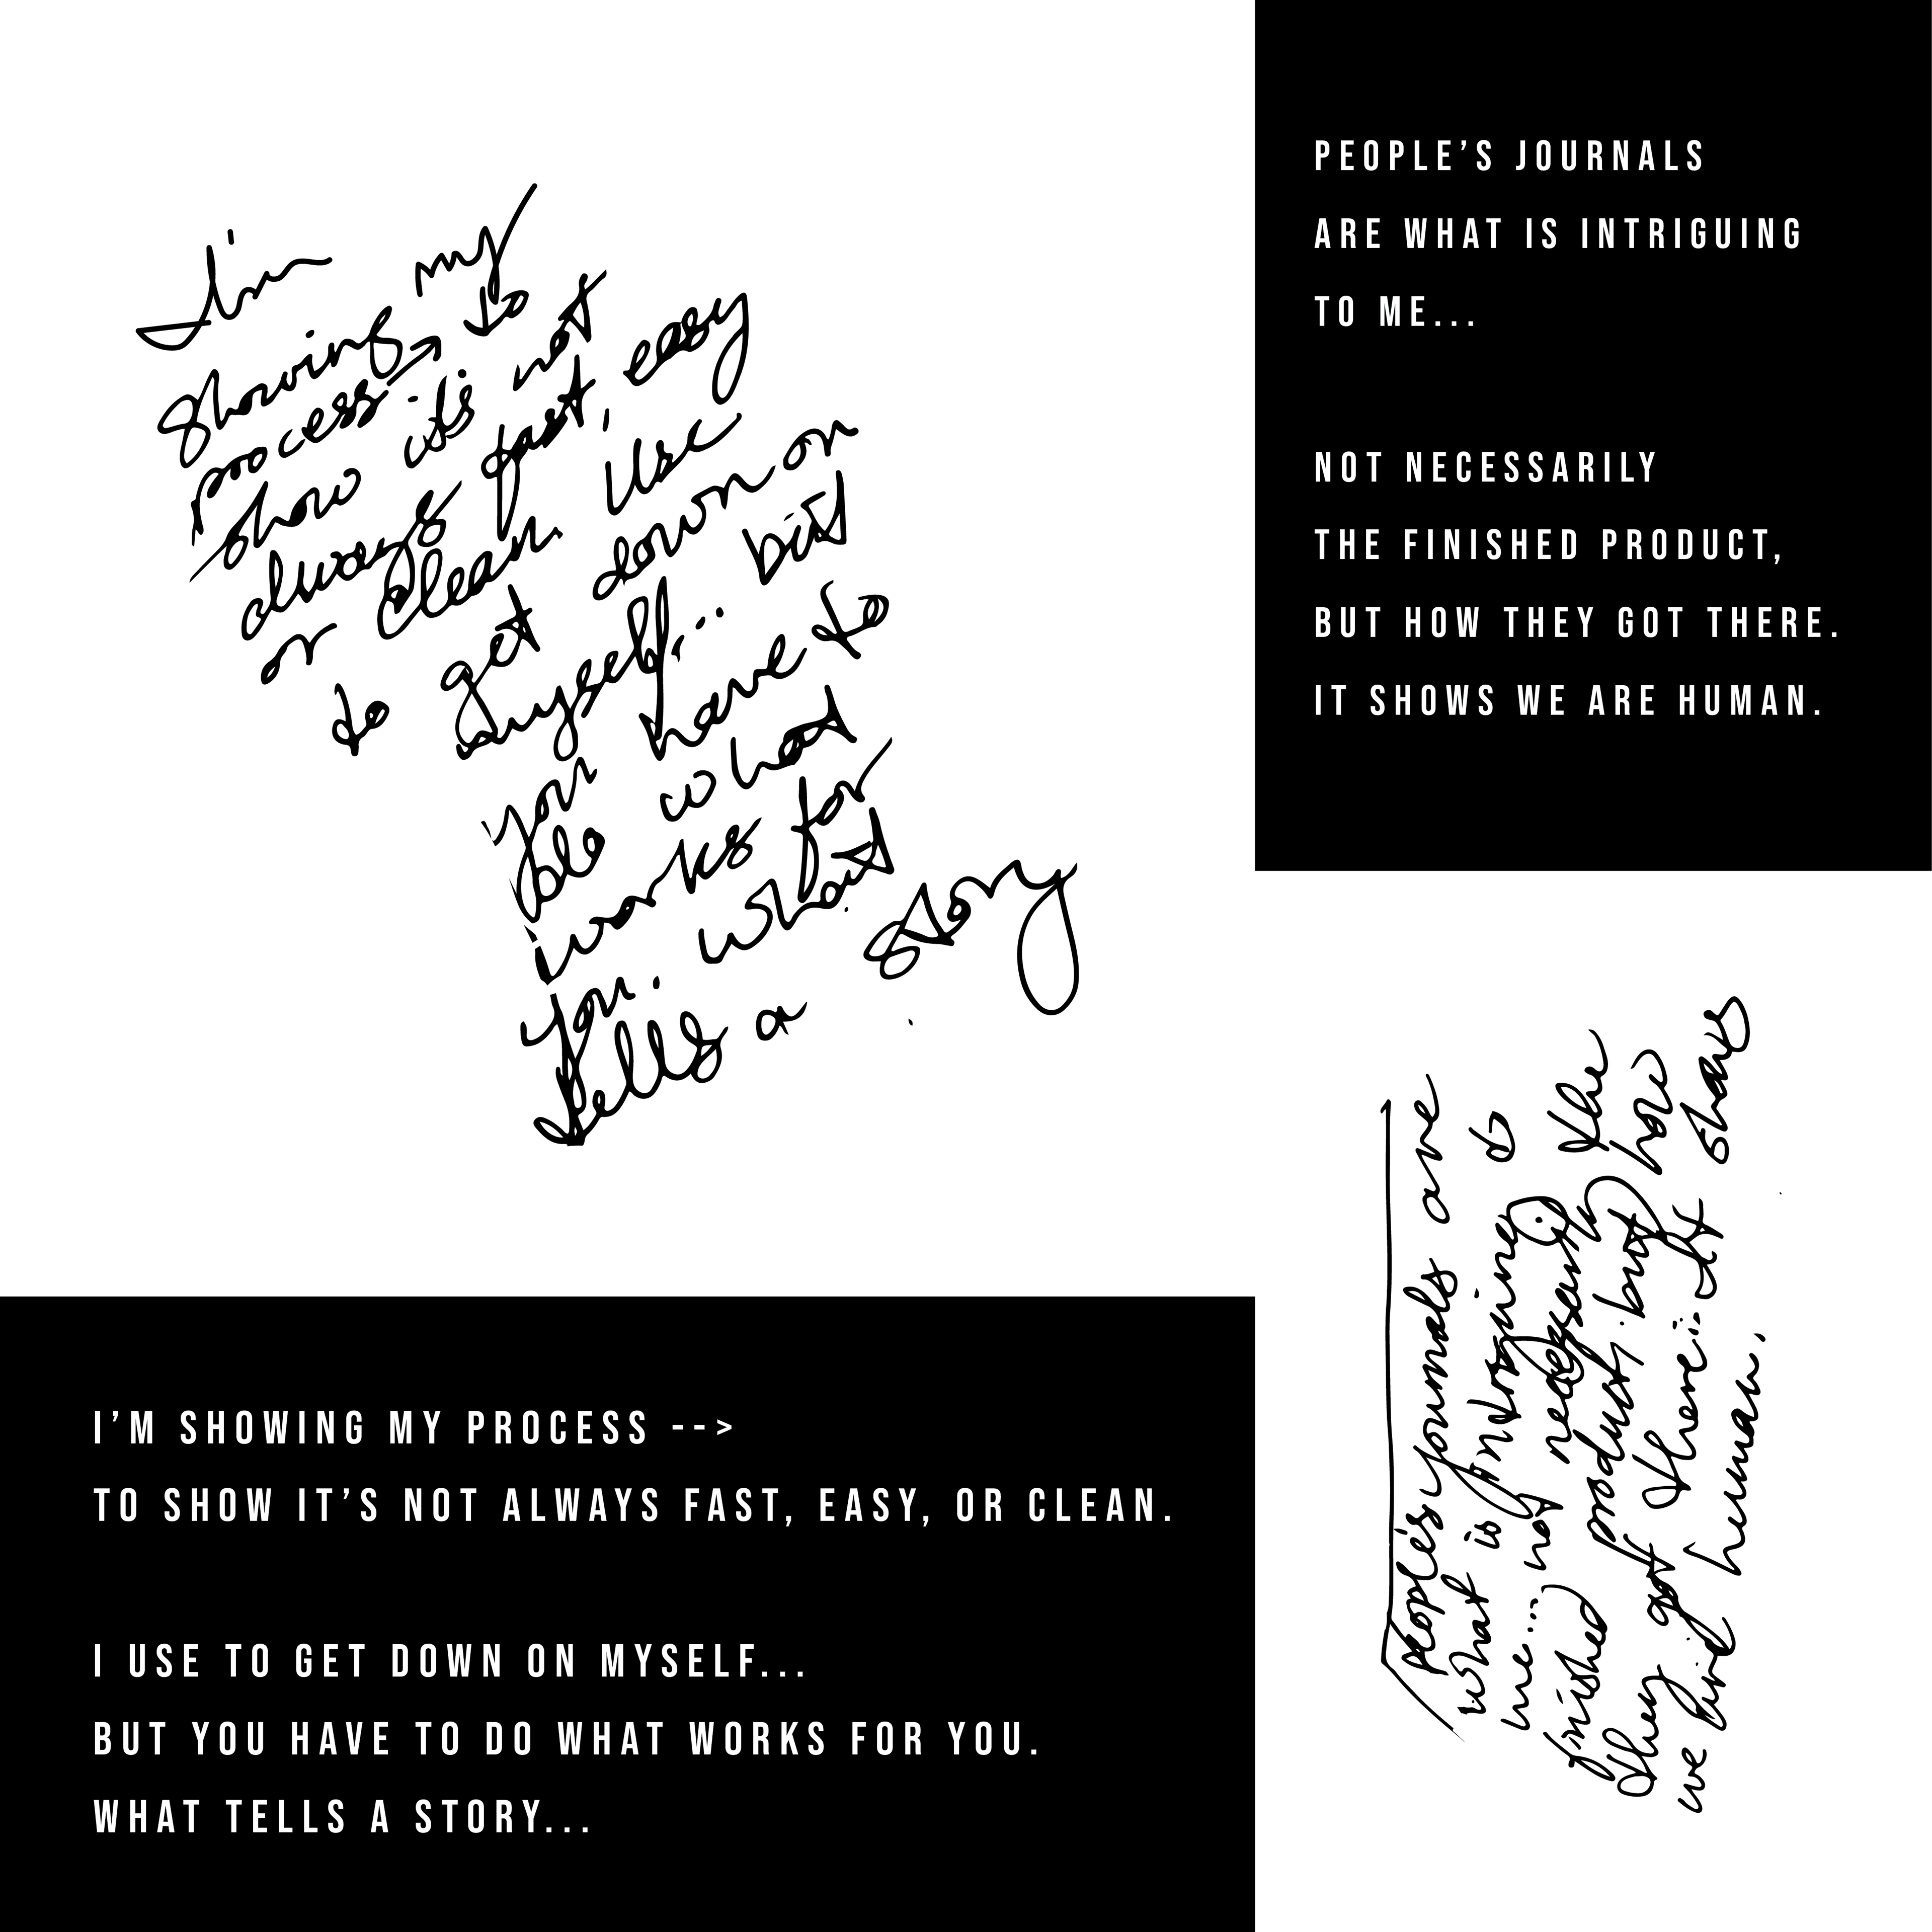 I'm
showing my
process → to
show it's not
always fast, easy
or clean. i use
to get down on
myself... but
you have to
do what
works for
you. what
tells a story
PEOPLE’S JOURNALS
ARE WHAT IS INTRIGUING
TO ME...
NOT NECESSARILY
THE FINISHED PRODUCT,
BUT HOW THEY GOT THERE.
IT SHOWS WE ARE HUMAN.
I’M SHOWING MY PROCESS -->
TO SHOW IT’S NOT ALWAYS FAST, EASY, OR CLEAN.
I USE TO GET DOWN ON MYSELF...
BUT YOU HAVE TO DO WHAT WORKS FOR YOU.
WHAT TELLS A STORY...
People's journals are
what is intriguing to
me... not necessarily the
finished product, but how
they got there. It shows
we are human.